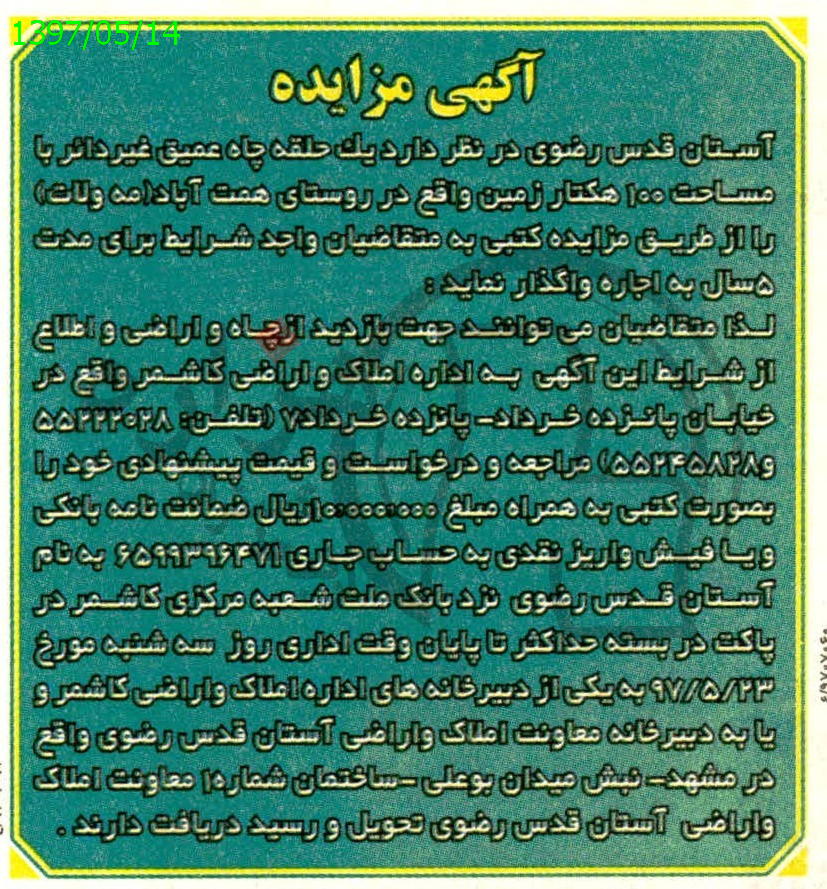 1397/05/14
آگهی مزایده
آستان قدس رضوی در نظر دارد یك حلقه چاه عمیق غیردائر با
مساحت ۱۰۰ هکتار زمین واقع در روستای همت آباد(مه ولات)
را از طریق مزایده کتبی به متقاضیان واجد شرایط برای مدت
۵سال به اجاره واگذار نماید :
لذا متقاضیان می توانند جهت بازدید ازچاه و اراضی و اطلاع
از شرایط این آگهی به اداره املاک و اراضی کاشمر واقع در
خیابان پانزده خرداد- پانزده خرداد۷ (تلفن: ۵۵۲۲۲۰۲۸
و۵۵۲۴۵۸۲۸) مراجعه و درخواست و قیمت پیشنهادی خود را
بصورت کتبی به همراه مبلغ ۱۰۰۰۰۰۰۰ریال ضمانت نامه بانکی
و یا فیش واریز نقدی به حساب جاری ۶۵۹۹۳۹۶۴۷۱ به نام
آستان قدس رضوی نزد بانک ملت شعبه مرکزی کاشمر در
پاکت در بسته حداکثر تا پایان وقت اداری روز سه شنبه مورخ
۹۷/۵/۲۳ به یکی از دبیرخانه های اداره املاک واراضی کاشمر و
یا به دبیرخانه معاونت املاک واراضی آستان قدس رضوی واقع
در مشهد- نبش میدان بوعلی -ساختمان شماره۱ معاونت املاک
واراضی آستان قدس رضوی تحویل و رسید دریافت دارند .